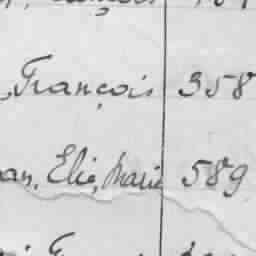 François 358
an, Elie, Marie 589